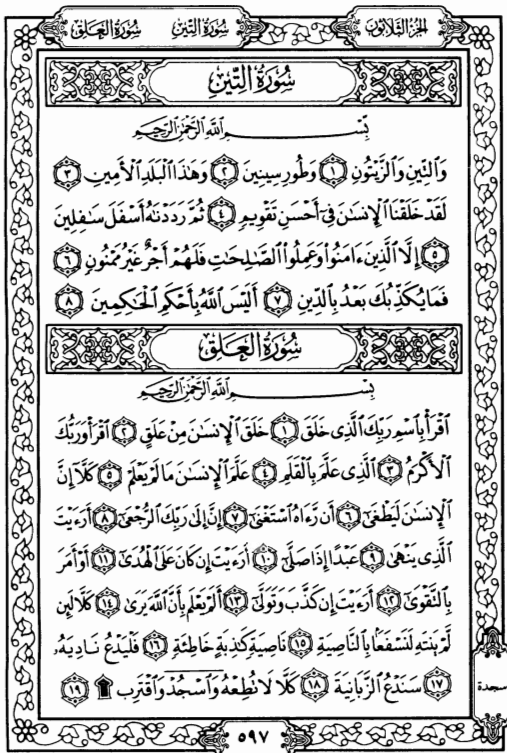 الجزء الثلاثون
سُورَةُ التِّين سُورَةُ العَلَق
سُورَةُ التِّينِ
بِسْمِ اللَّهِ الرَّحْمَٰنِ الرَّحِيمِ
وَالتِّينِ وَالزَّيْتُونِ ١ وَطُورِ سِينِينَ ٢ وَهَٰذَا الْبَلَدِ الْأَمِينِ ٣
لَقَدْ خَلَقْنَا الْإِنسَٰنَ فِىٓ أَحْسَنِ تَقْوِيمٍ ٤ ثُمَّ رَدَدْنَٰهُ أَسْفَلَ سَٰفِلِينَ
٥ إِلَّا الَّذِينَ ءَامَنُوا۟ وَعَمِلُوا۟ الصَّٰلِحَٰتِ فَلَهُمْ أَجْرٌ غَيْرُ مَمْنُونٍ ٦
فَمَا يُكَذِّبُكَ بَعْدُ بِالدِّينِ ٧ أَلَيْسَ اللَّهُ بِأَحْكَمِ الْحَٰكِمِينَ ٨
سُورَةُ العَلَقِ
بِسْمِ اللَّهِ الرَّحْمَٰنِ الرَّحِيمِ
اقْرَأْ بِاسْمِ رَبِّكَ الَّذِى خَلَقَ ١ خَلَقَ الْإِنسَٰنَ مِنْ عَلَقٍ ٢ اقْرَأْ وَرَبُّكَ
الْأَكْرَمُ ٣ الَّذِى عَلَّمَ بِالْقَلَمِ ٤ عَلَّمَ الْإِنسَٰنَ مَا لَمْ يَعْلَمْ ٥ كَلَّآ إِنَّ
الْإِنسَٰنَ لَيَطْغَىٰٓ ٦ أَن رَّءَاهُ اسْتَغْنَىٰٓ ٧ إِنَّ إِلَىٰ رَبِّكَ الرُّجْعَىٰٓ ٨ أَرَءَيْتَ
الَّذِى يَنْهَىٰ ٩ عَبْدًا إِذَا صَلَّىٰٓ ١٠ أَرَءَيْتَ إِن كَانَ عَلَى الْهُدَىٰٓ ١١ أَوْ أَمَرَ
بِالتَّقْوَىٰٓ ١٢ أَرَءَيْتَ إِن كَذَّبَ وَتَوَلَّىٰٓ ١٣ أَلَمْ يَعْلَم بِأَنَّ اللَّهَ يَرَىٰ ١٤ كَلَّا لَئِن
لَّمْ يَنتَهِ لَنَسْفَعًۢا بِالنَّاصِيَةِ ١٥ نَاصِيَةٍ كَٰذِبَةٍ خَاطِئَةٍ ١٦ فَلْيَدْعُ نَادِيَهُۥ
١٧ سَنَدْعُ الزَّبَانِيَةَ ١٨ كَلَّا لَا تُطِعْهُ وَاسْجُدْ وَاقْتَرِب ۩ ١٩
سجدة
٥٩٧